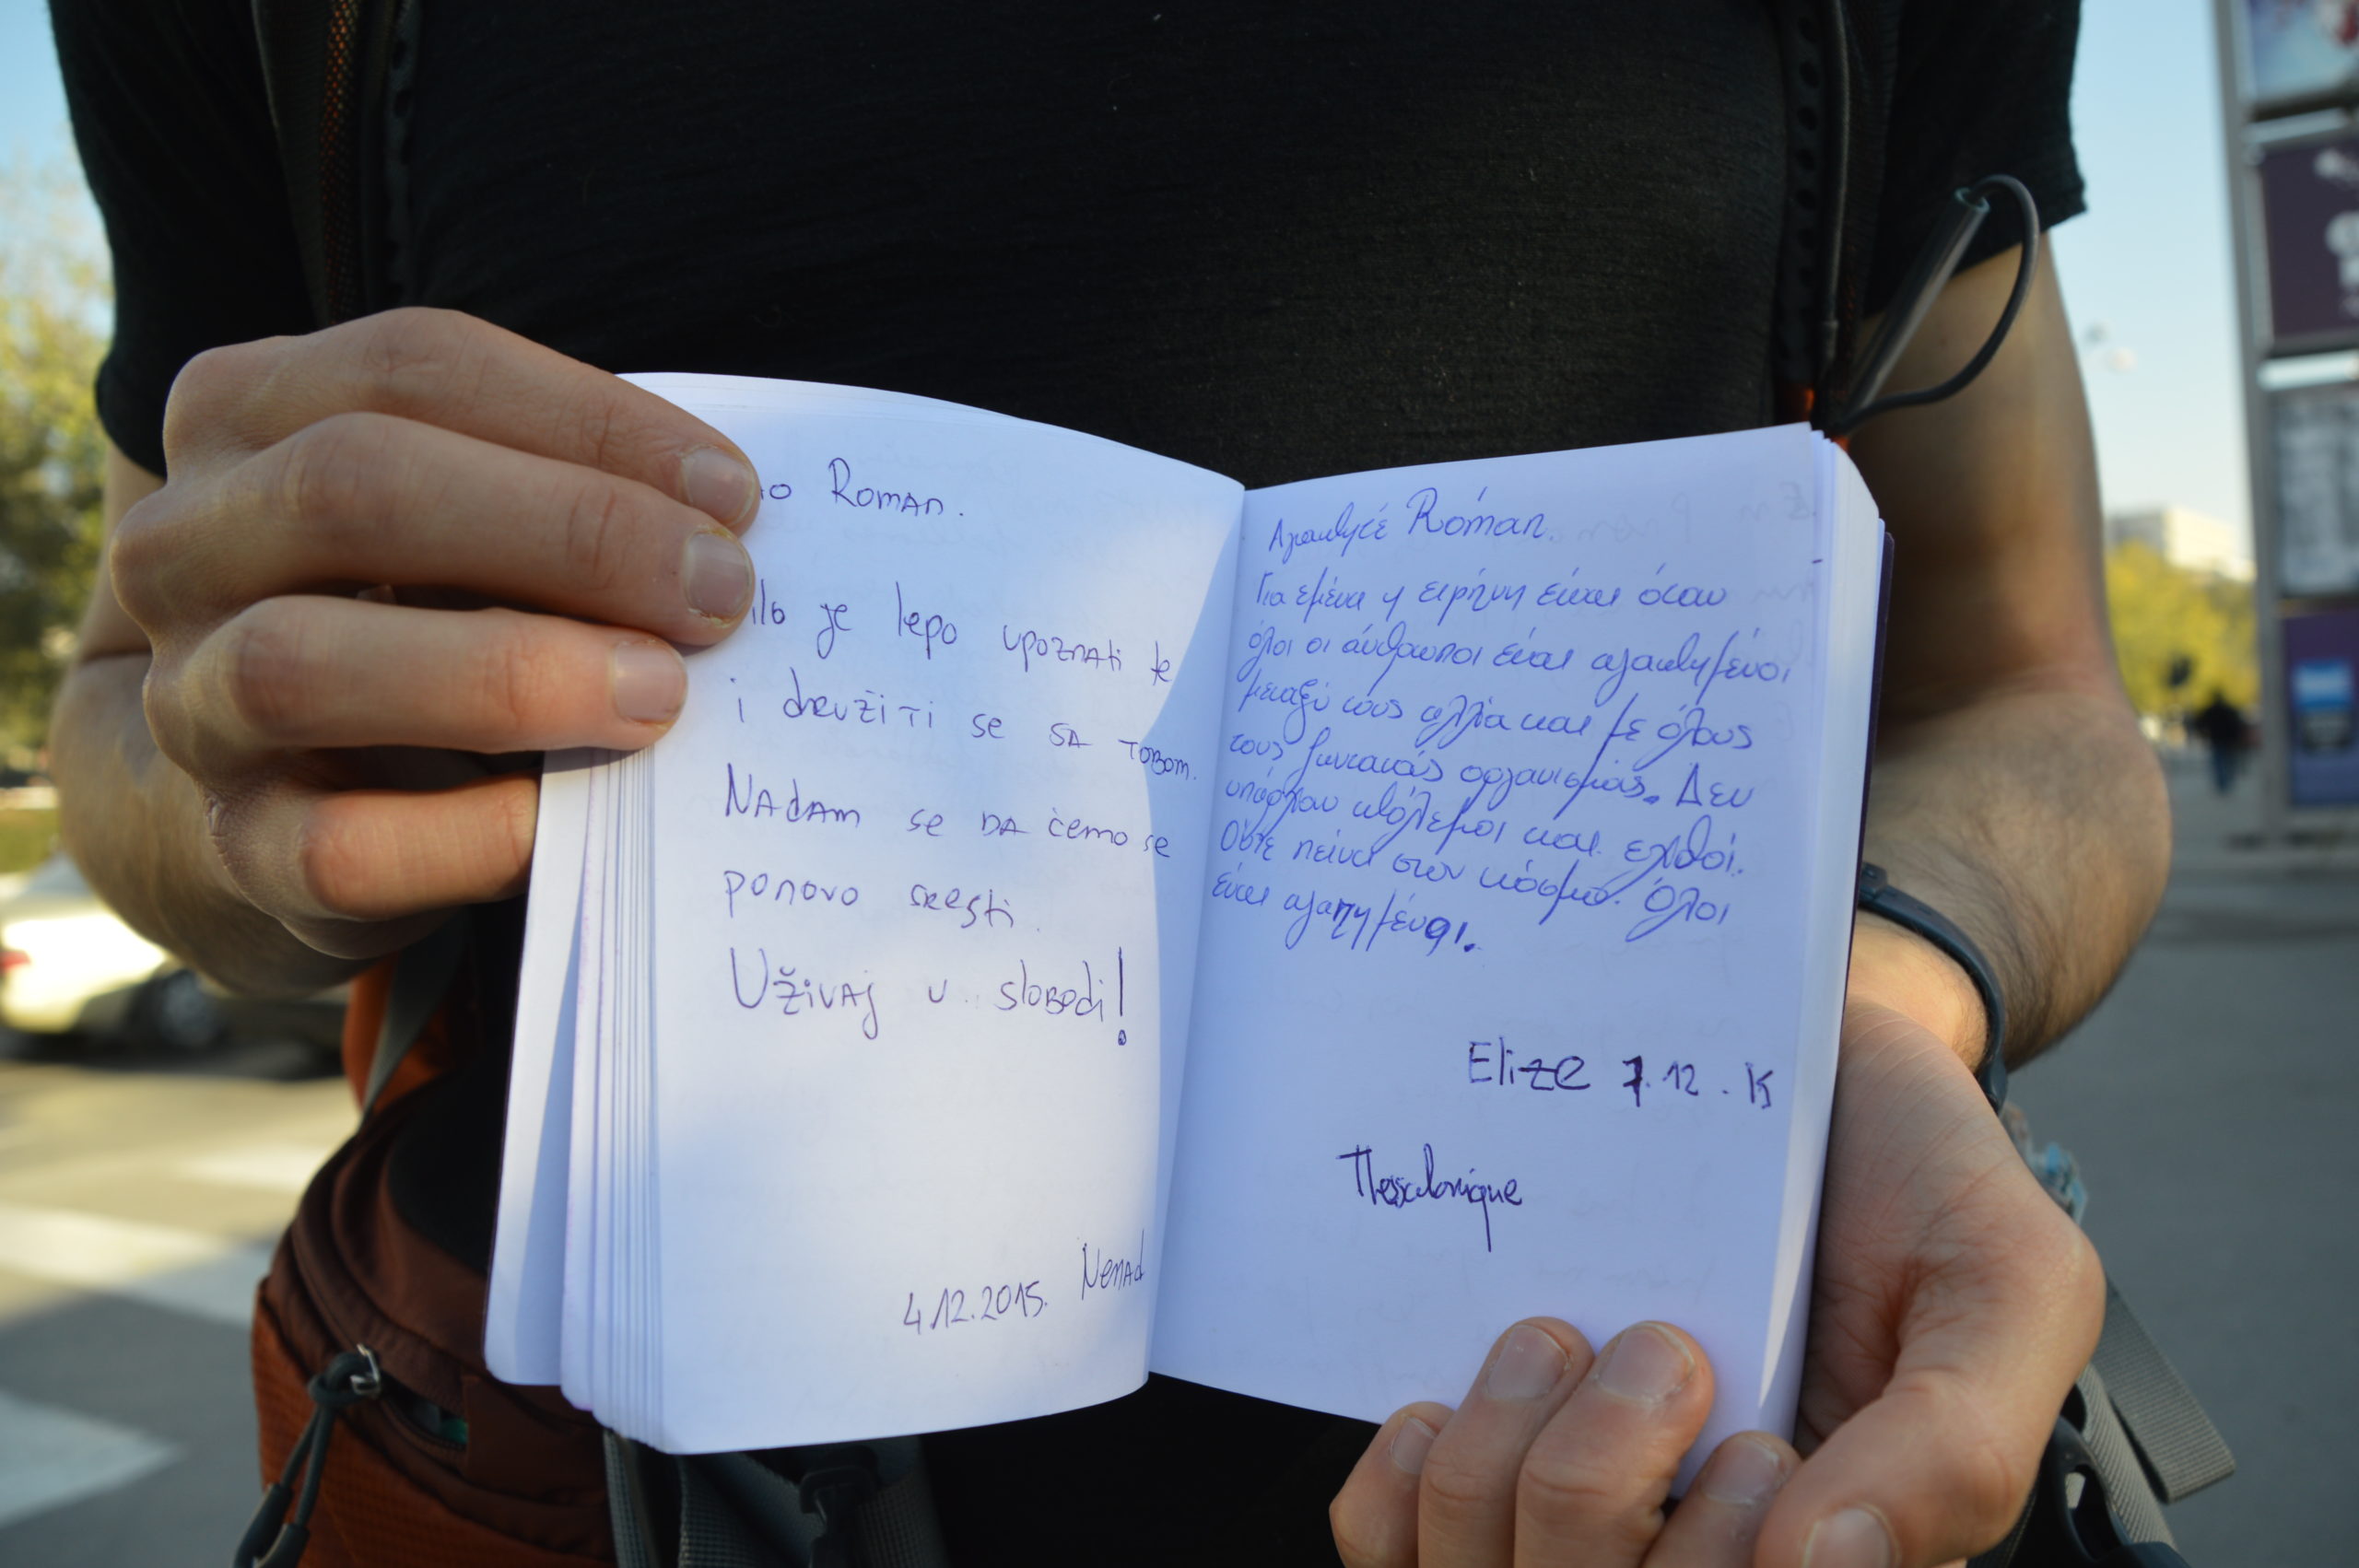 Roman.
je lepo upoznati te
i družiti se sa tobom.
Nadam se da ćemo se
ponovo sresti.
Uživaj u slobodi!
4.12.2015. Nenad
Αγαπητέ Róman.
Για εμένα η ειρήνη είναι όταν
όλοι οι άνθρωποι είναι αγαπημένοι
μεταξύ τους αλλά και με όλους
τους ζωντανούς οργανισμούς. Δεν
υπάρχουν πόλεμοι και εχθροί.
Ούτε πείνα στον κόσμο. Όλοι
είναι αγαπημένοι.
Elize 7.12. K
Thessalonique